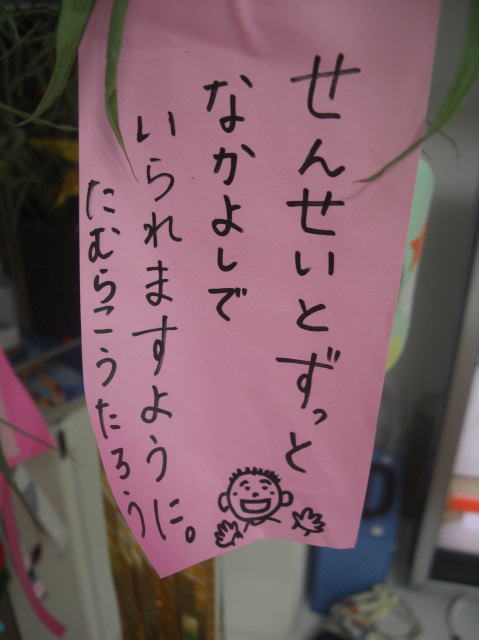 せんせいとずっと
なかよしで
いられますように。
たむらこうたろう